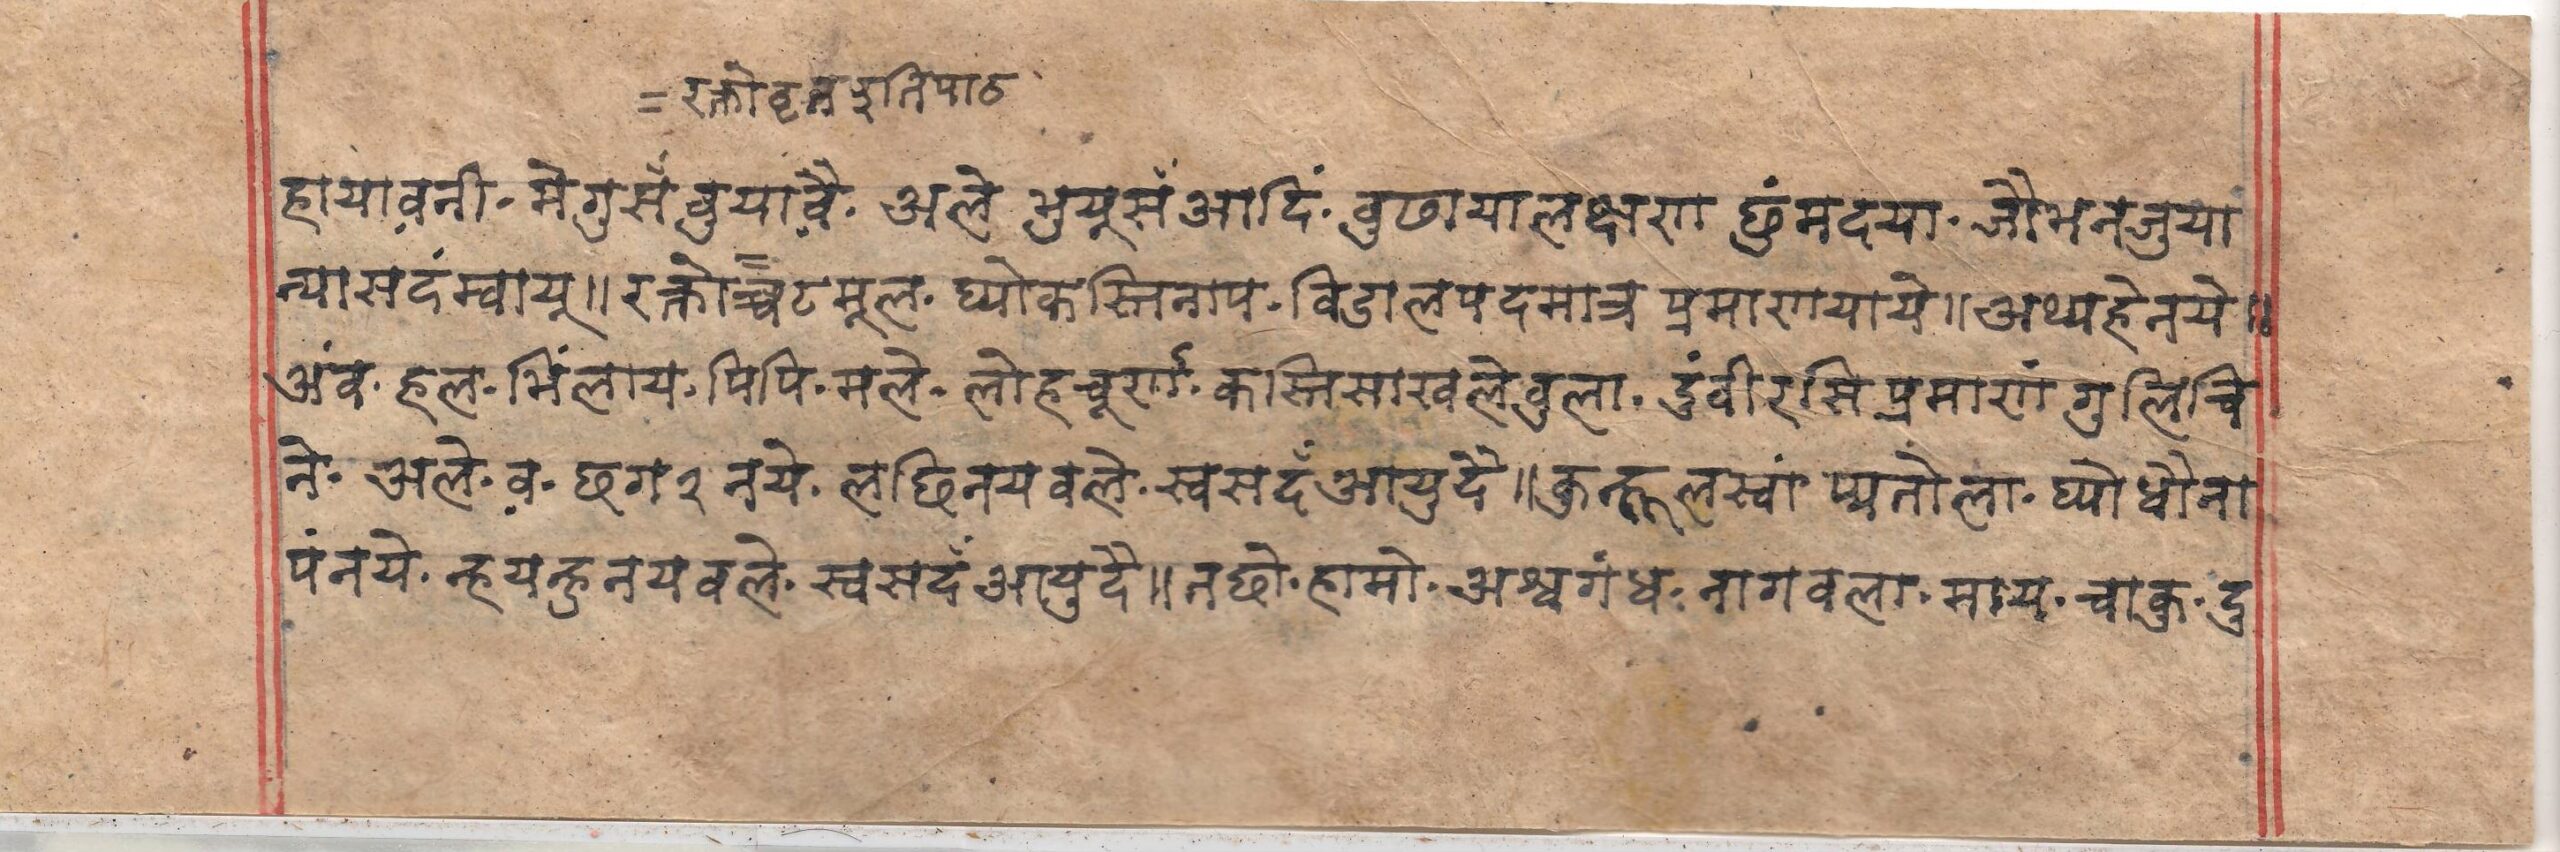 = रक्तोवृत्त इतिपाठ
हायावनी॰ मेगुसँ वुयावै॰ अले भुयूसँ आदिं॰ वुछायालक्षण छुंमदया॰ जौभनजुया
न्यासदंम्वायू॥ रक्तोच्चटमूल॰ घ्योकस्तिनाप॰ विडालपदमात्र प्रमाणयाये॥ अथ्यहेनये॥
अंव॰ हल॰ भिंलाय॰ पिपि॰ मले॰ लोहचूर्ण॰ कस्तिसाखलेवुला॰ डुंवीरसि प्रमाणं गुलिचि
ने॰ अले॰ व॰ छग१ नये॰ लछिनयवले॰ स्वसदँ आयुदै॥ कुन्हूलस्वां प्यतोला॰ घ्योधौना
पंनये॰ न्हयन्हुनयवले॰ स्वसदँ आयुदै॥ नछो॰ हामो॰ अश्वगंध॰ नागवला॰ माय॰ चाकु॰ दु